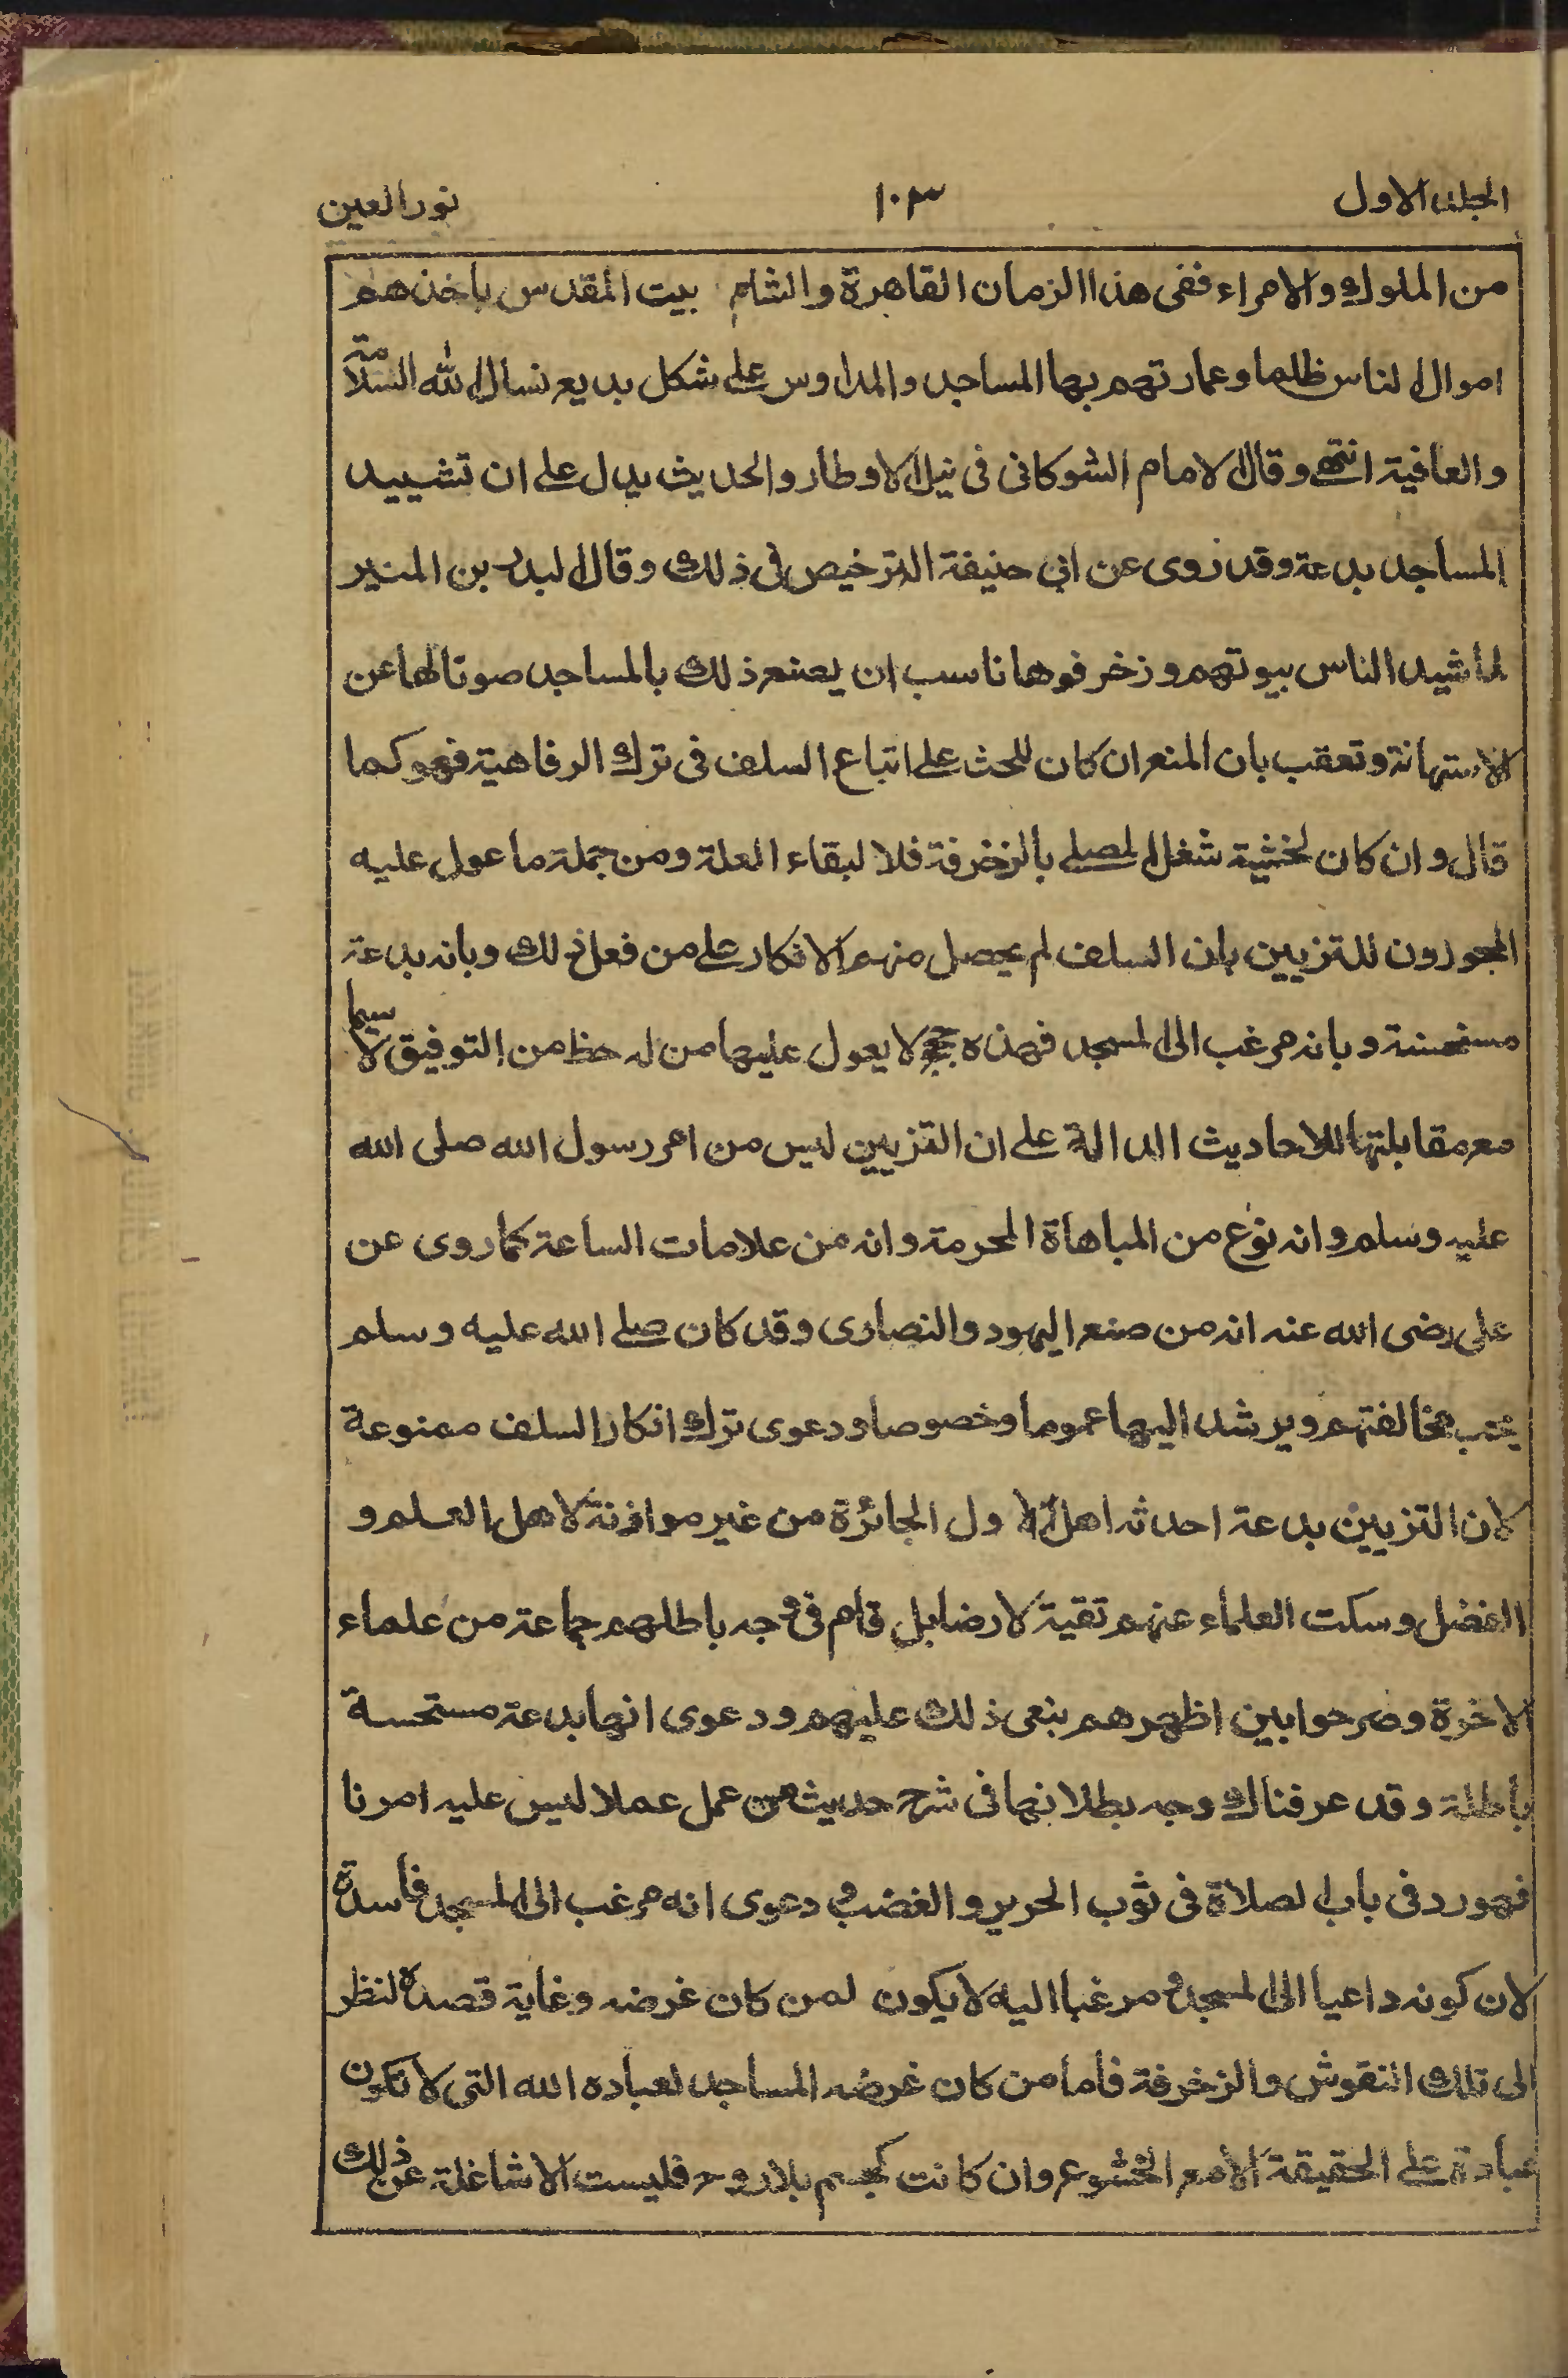 الجلد الاول ١٠٣ نور العين
من الملوك والامراء ففى هذا الزمان القاهرة والشام بيت المقدس باخذهم
اموال الناس ظلما وعمارتهم بها المساجد والمدارس على شكل بديع نسال الله السلامة
والعافية انتهى وقال الامام الشوكانى فى نيل الاوطار والحديث يدل على ان تشييد
المساجد بدعة وقد روى عن ابى حنيفة الترخيص فى ذلك وقال البدر بن المنير
لما شيد الناس بيوتهم وزخرفوها ناسب ان يصنع ذلك بالمساجد صونا لها عن
الاستهانة وتعقب بان المنع ان كان للحث على اتباع السلف فى ترك الرفاهية فهو كما
قال وان كان لخشية شغل المصلى بالزخرفة فلا لبقاء العلة ومن جملة ما عول عليه
المجوزون للتزيين بان السلف لم يحصل منهم الانكار على من فعل ذلك وبانه بدعة
مستحسنة وبانه مرغب الى المسجد فهذه حجج لا يعول عليها من له حظ من التوفيق لا سيما
مع مقابلتها للاحاديث الدالة على ان التزيين ليس من امر رسول الله صلى الله
عليه وسلم وانه نوع من المباهاة المحرمة وانه من علامات الساعة كما روى عن
على رضى الله عنه انه من صنع اليهود والنصارى وقد كان صلى الله عليه وسلم
يحب مخالفتهم ويرشد اليها عموما وخصوصا ودعوى ترك انكار السلف ممنوعة
لان التزيين بدعة احدثه اهل الدول الجائرة من غير مواذنة لاهل العلم و
الفضل وسكت العلماء عنهم تقية لا رضا بل قام فى وجه باطلهم جماعة من علماء
الاخرة وصرحوا بين اظهرهم بنعى ذلك عليهم ودعوى انها بدعة مستحسنة
باطلة وقد عرفناك وجه بطلانها فى شرح حديث من عمل عملا ليس عليه امرنا
فهو رد فى باب الصلاة فى ثوب الحرير والغضب و دعوى انه مرغب الى المسجد فاسدة
لان كونه داعيا الى المسجد و مرغبا اليه لا يكون لمن كان غرضه وغاية قصده النظر
الى تلك النقوش والزخرفة فاما من كان غرضه المساجد لعباده الله التى لا تكون
عبادة على الحقيقة الا مع الخشوع وان كانت كجسم بلا روح فليست الا شاغلة عن ذلك